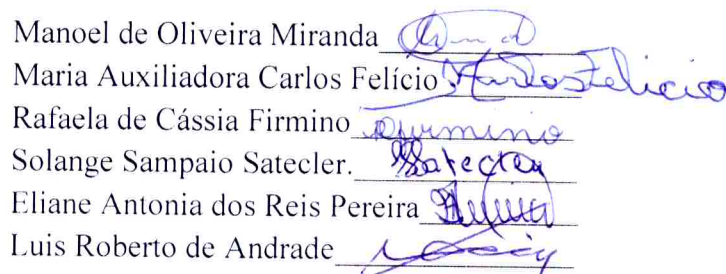 Manoel de Oliveira Miranda
Maria Auxiliadora Carlos Felício
Rafaela de Cássia Firmino Firmino
Solange Sampaio Satecler. Satecler
Eliane Antonia dos Reis Pereira
Luis Roberto de Andrade